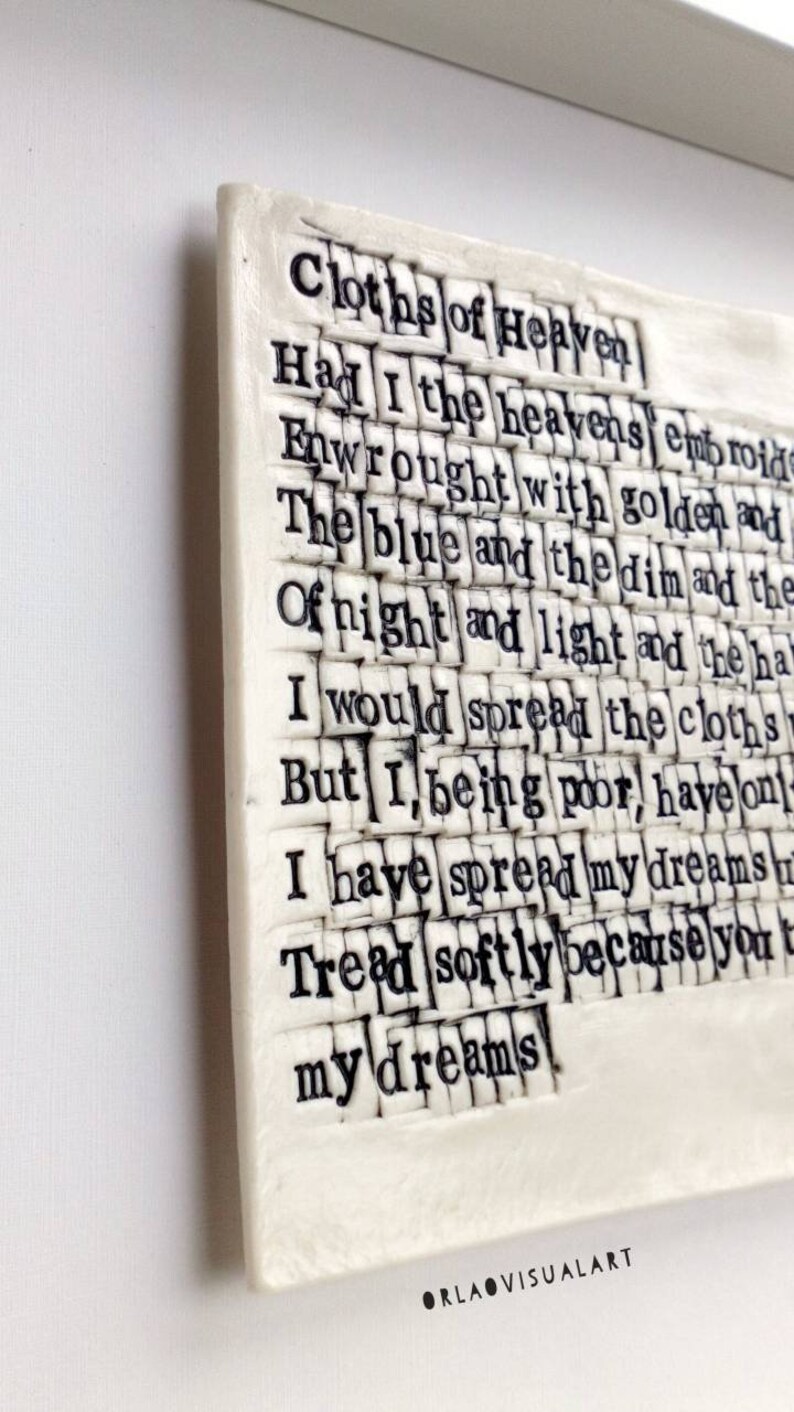 Cloths of Heaven
Had I the heavens' embroide
Enwrought with golden and
The blue and the dim and the
Of night and light and the ha
I would spread the cloths
But I, being poor, have onl
I have spread my dreams u
Tread softly because you t
my dreams.
ORLAOVISUALART